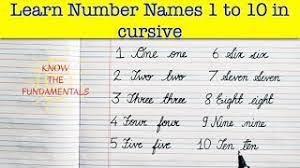 Learn Number Names 1 to 10 in
cursive
KNOW
THE
FUNDAMENTALS
1 One one
2 Two two
3 Three three
4 Four four
5 Five five
6 Six six
7 Seven Seven
8 Eight eight
9 Nine nine
10 Ten ten